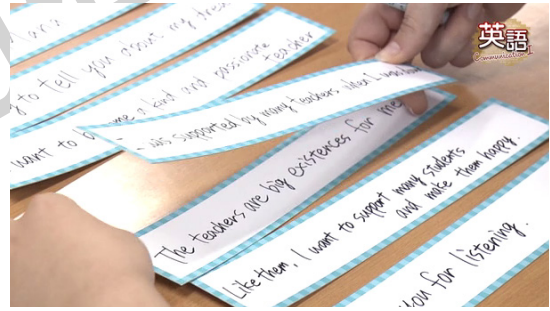 to tell you about my
want to
a kind and passionate
teacher
was supported by many teachers when I was
The teachers are big existences for me
Like them, I want to support many students
and make them happy.
you for listening.
英語
Communication I